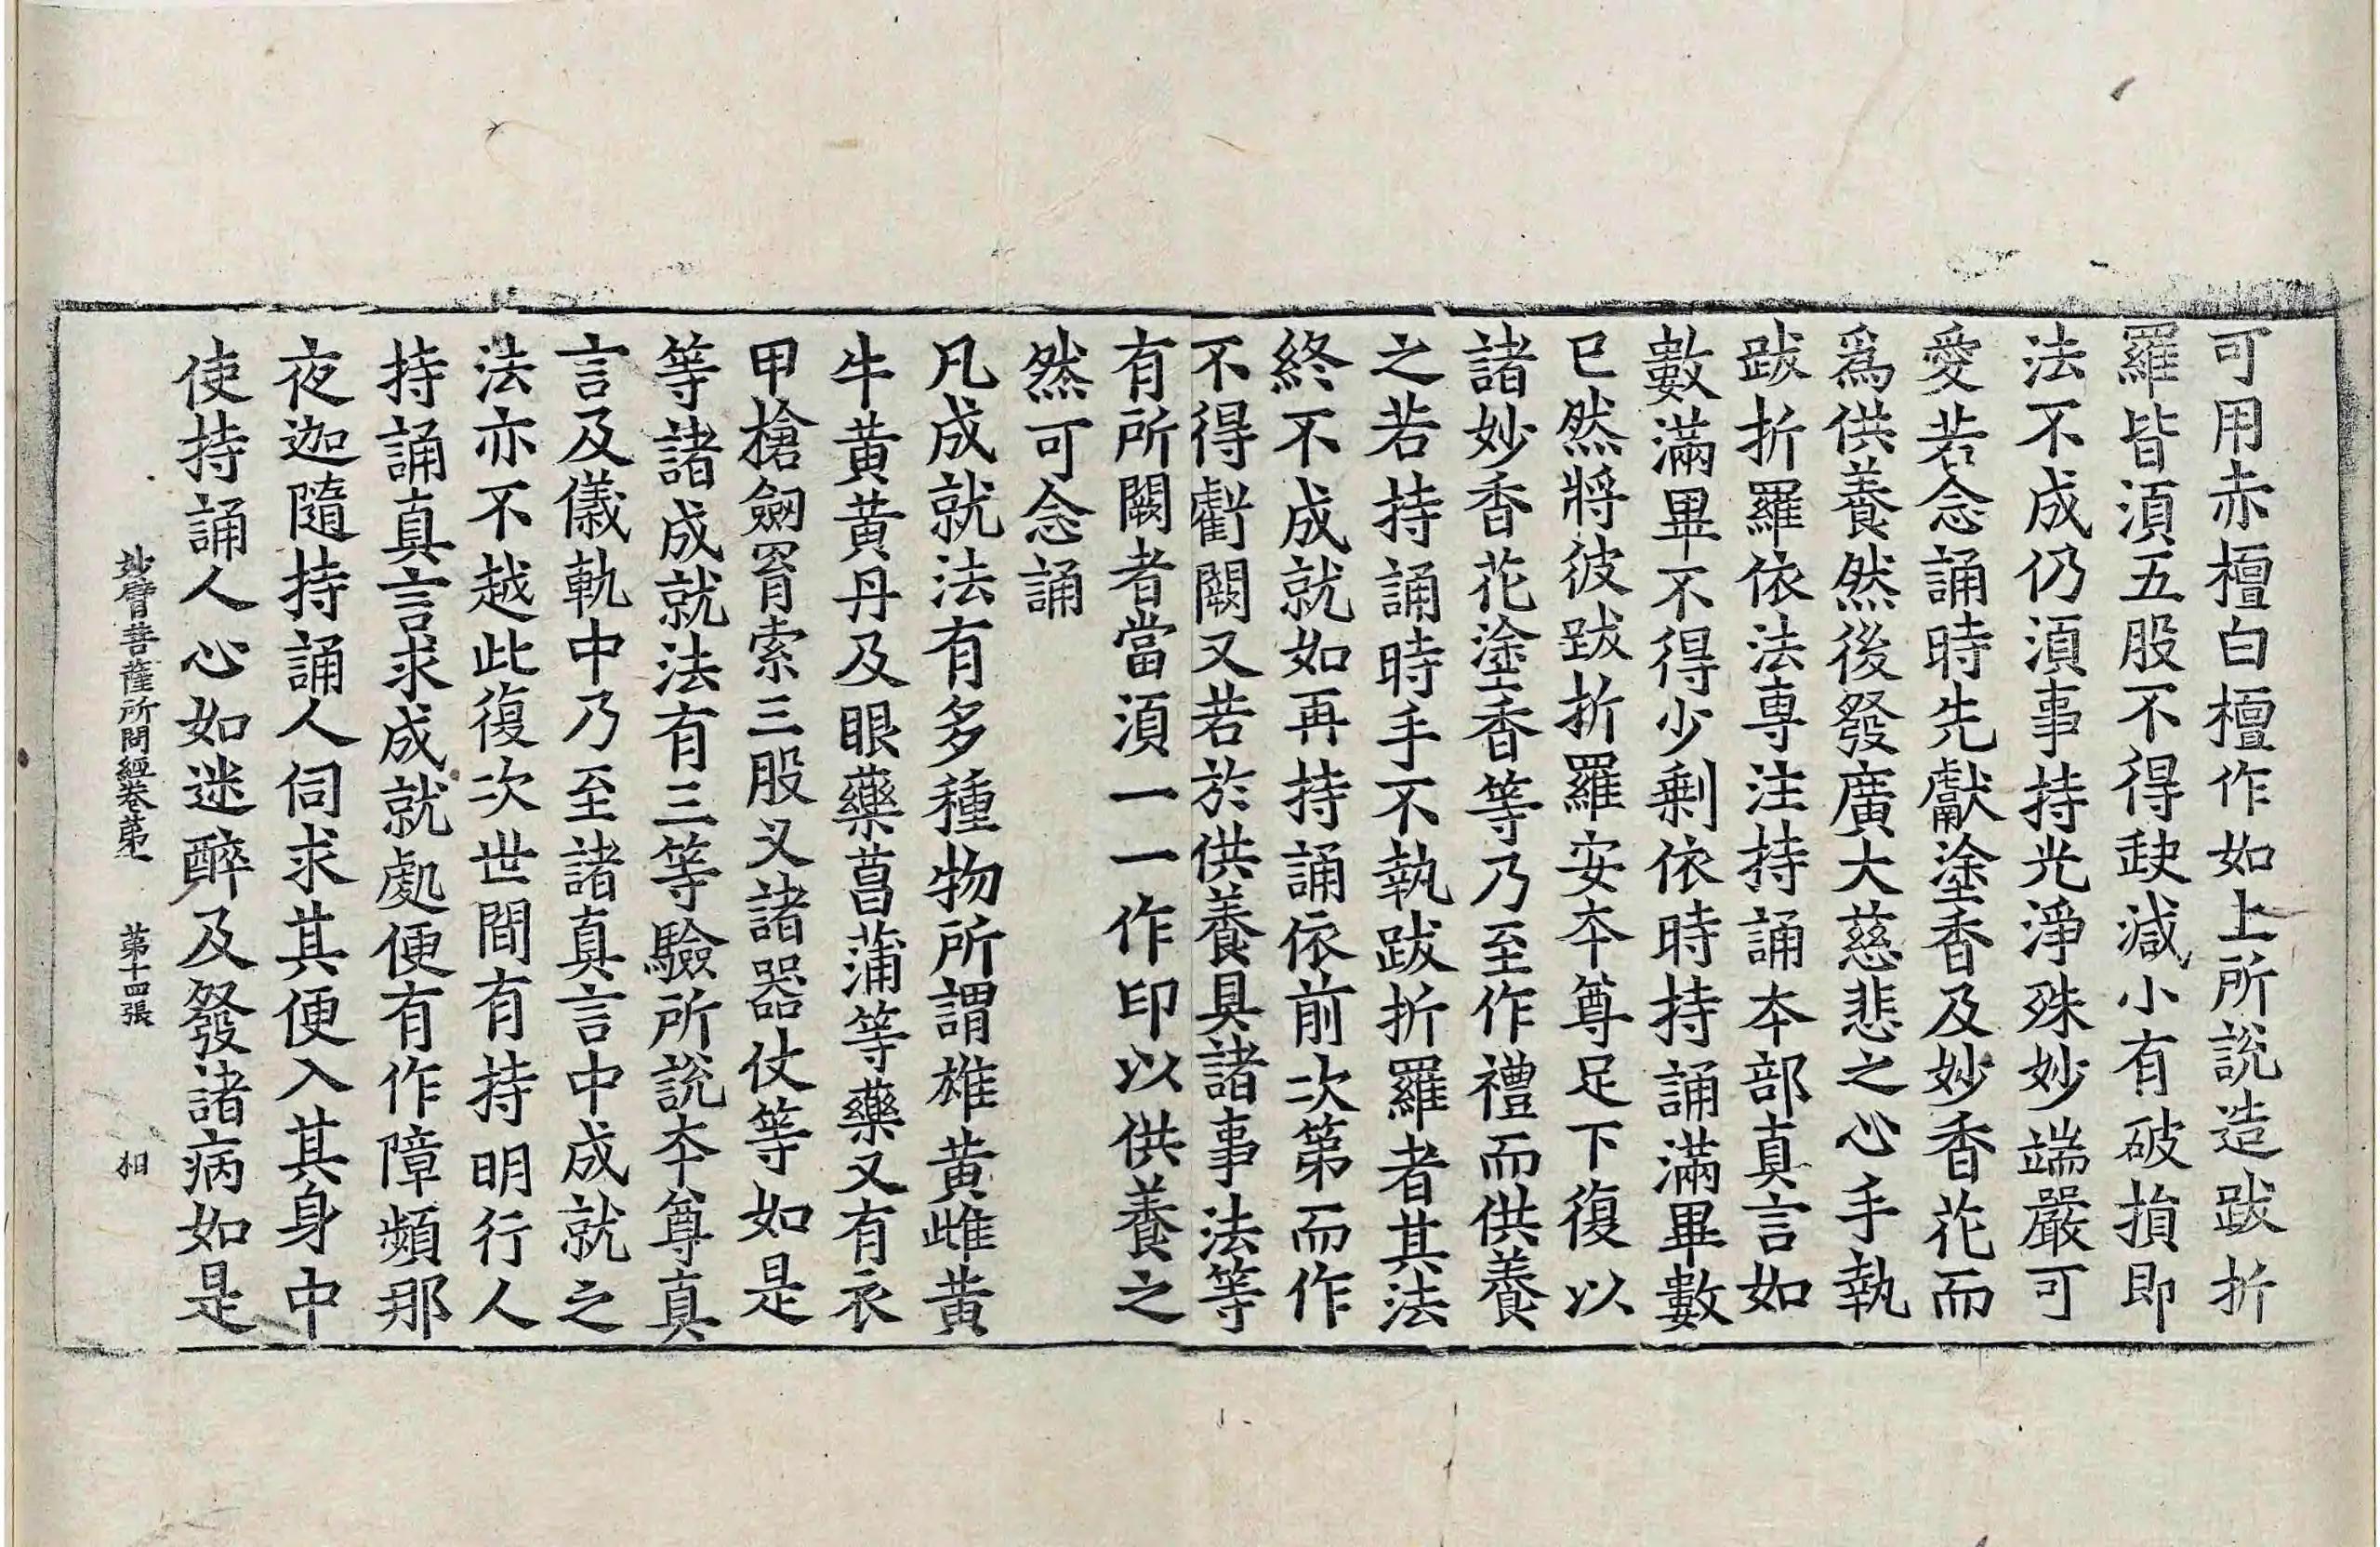 可用赤檀白檀作如上所說造跋折
羅皆湏五股不得缺減小有破損即
法不成仍湏事持光淨殊妙端嚴可
愛若念誦時先獻塗香及妙香花而
爲供養然後發廣大慈悲之心手執
跋折羅依法專注持誦本部真言如
數滿畢不得少剩依時持誦滿畢數
已然將彼跋折羅安本尊足下復以
諸妙香花塗香等乃至作禮而供養
之若持誦時手不執跋折羅者其法
終不成就如再持誦依前次第而作
不得虧闕又若於供養具諸事法等
有所闕者當湏一一作印以供養之
然可念誦
凡成就法有多種物所謂雄黄雌黄
牛黄黄丹及眼藥菖蒲等藥又有衣
甲槍劒罥索三股叉諸器仗等如是
等諸成就法有三等驗所說本尊真
言及儀軌中乃至諸真言中成就之
法亦不越此復次世間有持明行人
持誦真言求成就處便有作障頻那
夜迦隨持誦人伺求其便入其身中
使持誦人心如迷醉及發諸病如是
妙臂菩薩所問經卷第一 第十四張 相